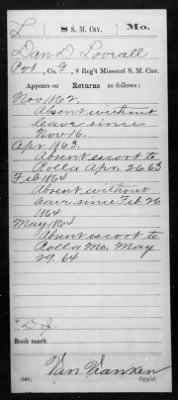 L 8 S. M. Cav. Mo.
Dan D Lovrall
Pvt, Co. G, 8 Reg't Missouri S. M. Cav.
Appears on Returns as follows:
Nov 1862.
Absent without
leave since
Nov 16.
Apr 1863.
Absent escort to
Rolla Apr 26 63
Feb 1864
Absent without
leave since Feb 26
1864
May 1864
Absent escort to
Rolla Mo. May
29. 64
Book mark
(546) Van Vranken
Copyist.